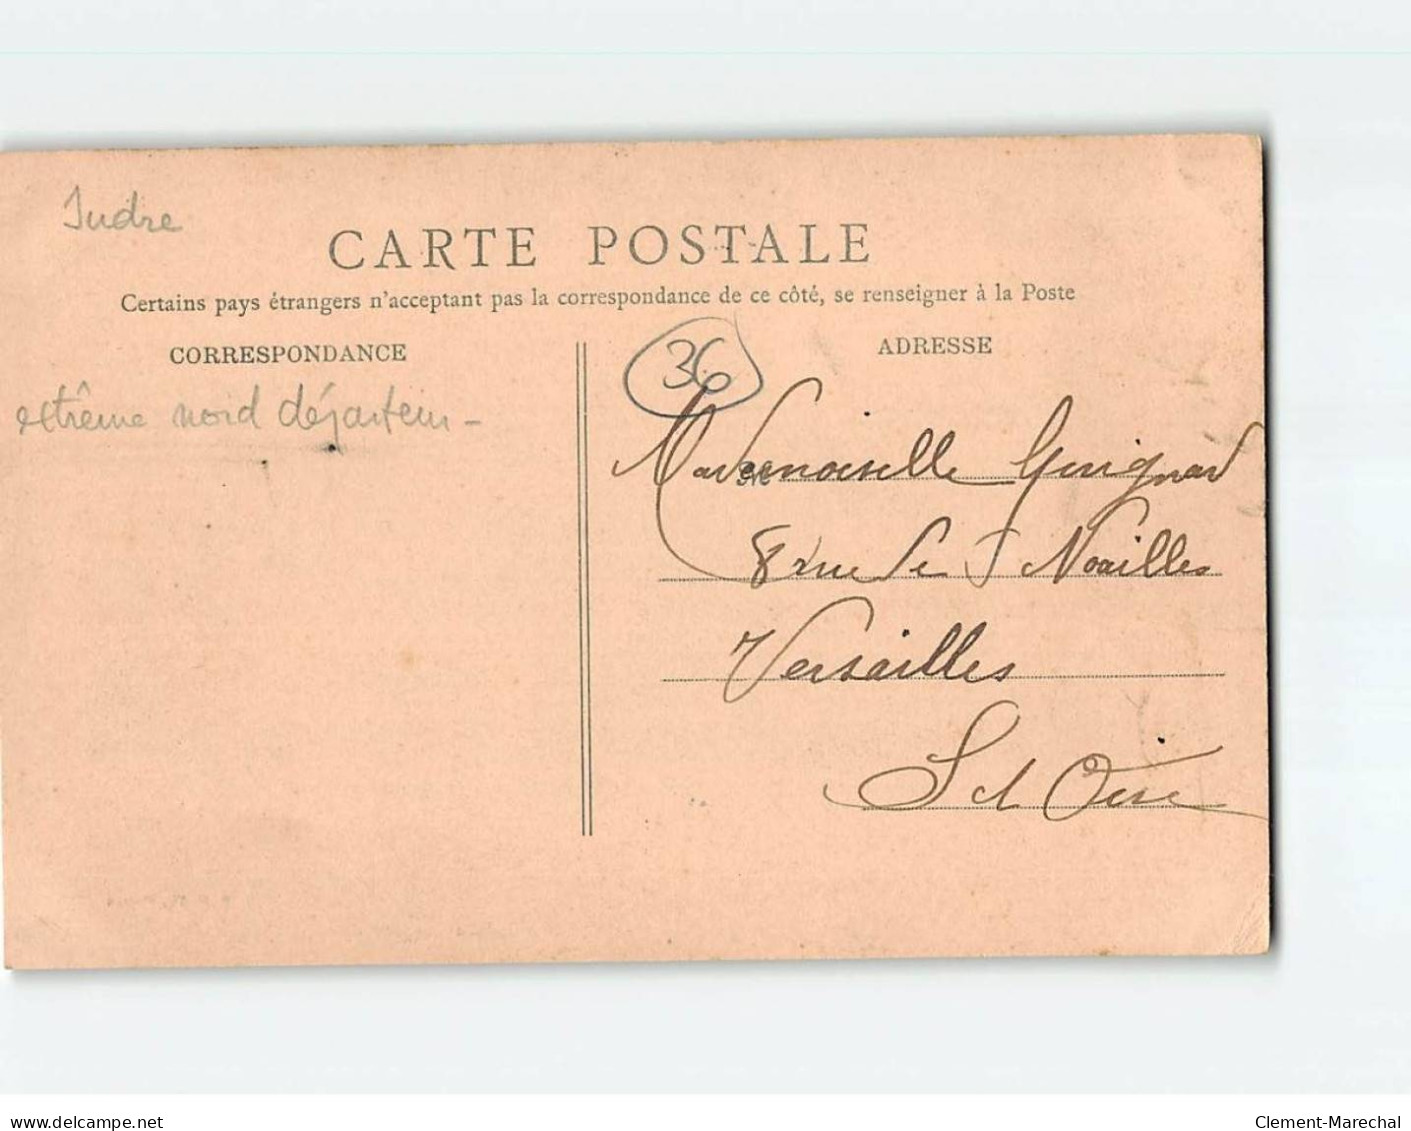 Indre
CARTE POSTALE
Certains pays étrangers n'acceptant pas la correspondance de ce côté, se renseigner à la Poste
CORRESPONDANCE
ADRESSE
36
extrême nord départem-
Mademoiselle Guignard
8 rue de Noailles
Versailles
S et Oise
www.delcampe.net
Clement-Marechal